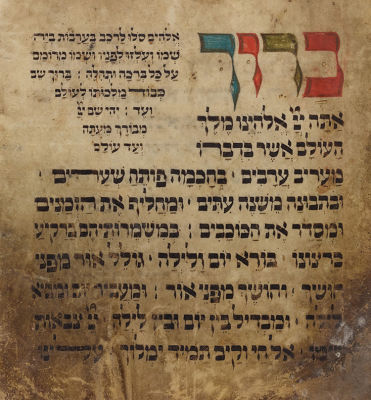 ברוך
אתה יי אלהינו מלך
העולם אשר בדברו
אלהים סלו לרכב בערבות ביה
שמו ועלזו לפניו ושמו מרומם
על כל ברכה ותהלה : ברוך שם
כבוד מלכותו לעולם
ועד : יהי שם יי
מבורך מעתה
ועד עולם
מעריב ערבים · בחכמה פותח שערים ·
ובתבונה משנה עתים · ומחליף את הזמנים
ומסדר את הכוכבים · במשמרותיהם ברקיע
כרצונו · בורא יום ולילה · גולל אור מפני
חושך · וחושך מפני אור · ומעביר יום ומביא
לילה · ומבדיל בין יום ובין לילה · יי צבאות
שמו · אל חי וקים תמיד ימלוך עלינו